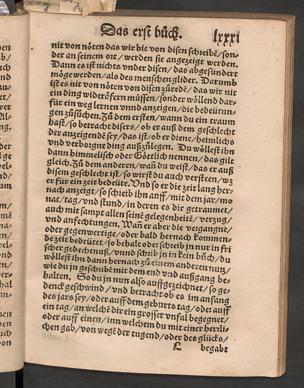 Das erst bůch. lxxxi
nit von nöten das wir hie von disen schreibē/son-
der an seinem ort/werden sie angezeigt werden.
Dann es ist nichts vnder disen/das abgesünder
möge werden/als des menschen glider. Darumb
ist es nit von nöten von disen zůredē/das wir nit
ein ding wideräfern müssen/sonder wöllend dar-
für ein weg lernen vnnd anzeigen/die bedeütunn
gen zůsůchen. Zů dem ersten/wann du ein traum
hast/so betracht disers/ob er auß dem geschlecht
der anzeigendē sey/das ist/ob er diene/heimlich
vnd verborgne ding außzůlegen. Du wöllest ihn
dann himmelisch oder Götelich nennen/das gilt
gleich. Zů dem anderen/wañ du weist/das er auß
disem geschlecht ist/so wirst du auch versteen/wz
er für ein zeit bedeüte. Vnd so er die zeit lang her-
nach anzeigt/so schreib ihn auff/mit dem jar/mo
nat/tag/vnd stund/in deren es dir getraumet/
auch mit sampt allen seinē gelegenheitē/verzug/
vnd anfechtungen. Wañ er aber die vergangne/
oder gegenwertige/oder bald hernach kommen-
de zeit bedeütet/so behalt oder schreib jn nur in fri
scher gedechtnuß/vnnd schrib jn in kein bůch/du
wöllest ihn dann hernach zů einem anderen nutz/
wie du jn geschribē mit dem end vnd außgang be-
halten. So du jn nun also auffgezeichnet/so ge-
denck geschwind/vnd betracht ob es im anfang
des jars sey/oder auff dem geburts tag/oder auff
ein tag/an welchē dir ein grosser vnfal begegnet/
oder auff einen/in welchem du mit einer herrli-
chen gab/von wegē der tugend/oder des glücks/
L begabt